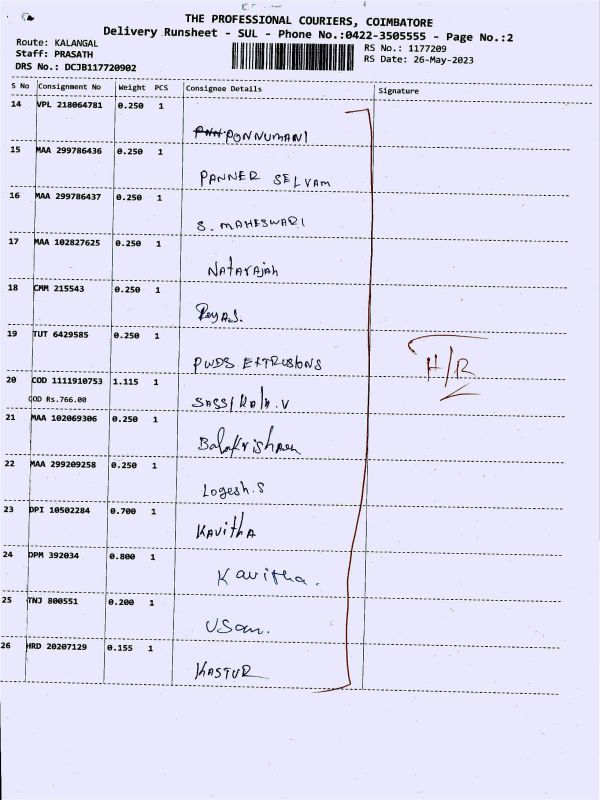 THE PROFESSIONAL COURIERS, COIMBATORE
Delivery Runsheet - SUL - Phone No.:0422-3505555 - Page No.:2
Route: KALANGAL
Staff: PRASATH
DRS No.: DCJB117720902
RS No.: 1177209
RS Date: 26-May-2023
S No Consignment No Weight PCS Consignee Details Signature
14 VPL 218064781 0.250 1
PONNUMANI
15 MAA 299786436 0.250 1
PANNER SELVAM
16 MAA 299786437 0.250 1
S. MAHESWARI
17 MAA 102827625 0.250 1
Natarajan
18 CMM 215543 0.250 1
19 TUT 6429585 0.250 1
PWDS EXTRUSIONS
H/R
20 COD 1111910753 1.115 1
COD Rs.766.00
SASSIKala.V
21 MAA 102069306 0.250 1
Balakrishnan
22 MAA 299209258 0.250 1
Logesh.S
23 DPI 10502284 0.700 1
Kavitha
24 DPM 392034 0.800 1
Kavitha.
25 TNJ 800551 0.200 1
26 HRD 20207129 0.155 1
KASTUR